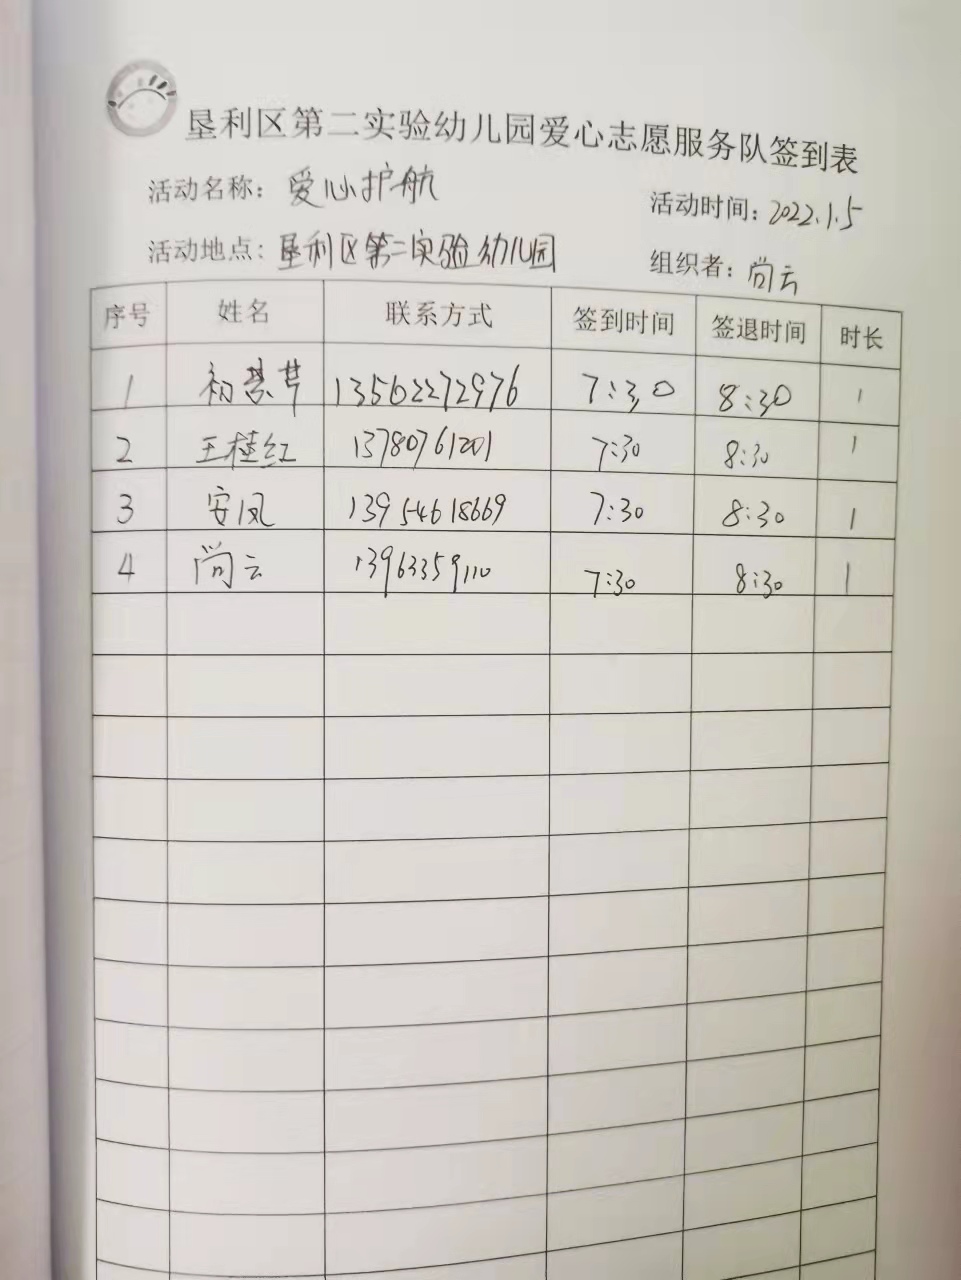 垦利区第二实验幼儿园爱心志愿服务队签到表
活动名称：爱心护航 活动时间：2022.1.5
活动地点：垦利区第二实验幼儿园 组织者：尚云
序号 姓名 联系方式 签到时间 签退时间 时长
1 13562272976 7:30 8:30 1
2 王桂红 13780761201 7:30 8:30 1
3 安凤 13954618669 7:30 8:30 1
4 尚云 13963359110 7:30 8:30 1